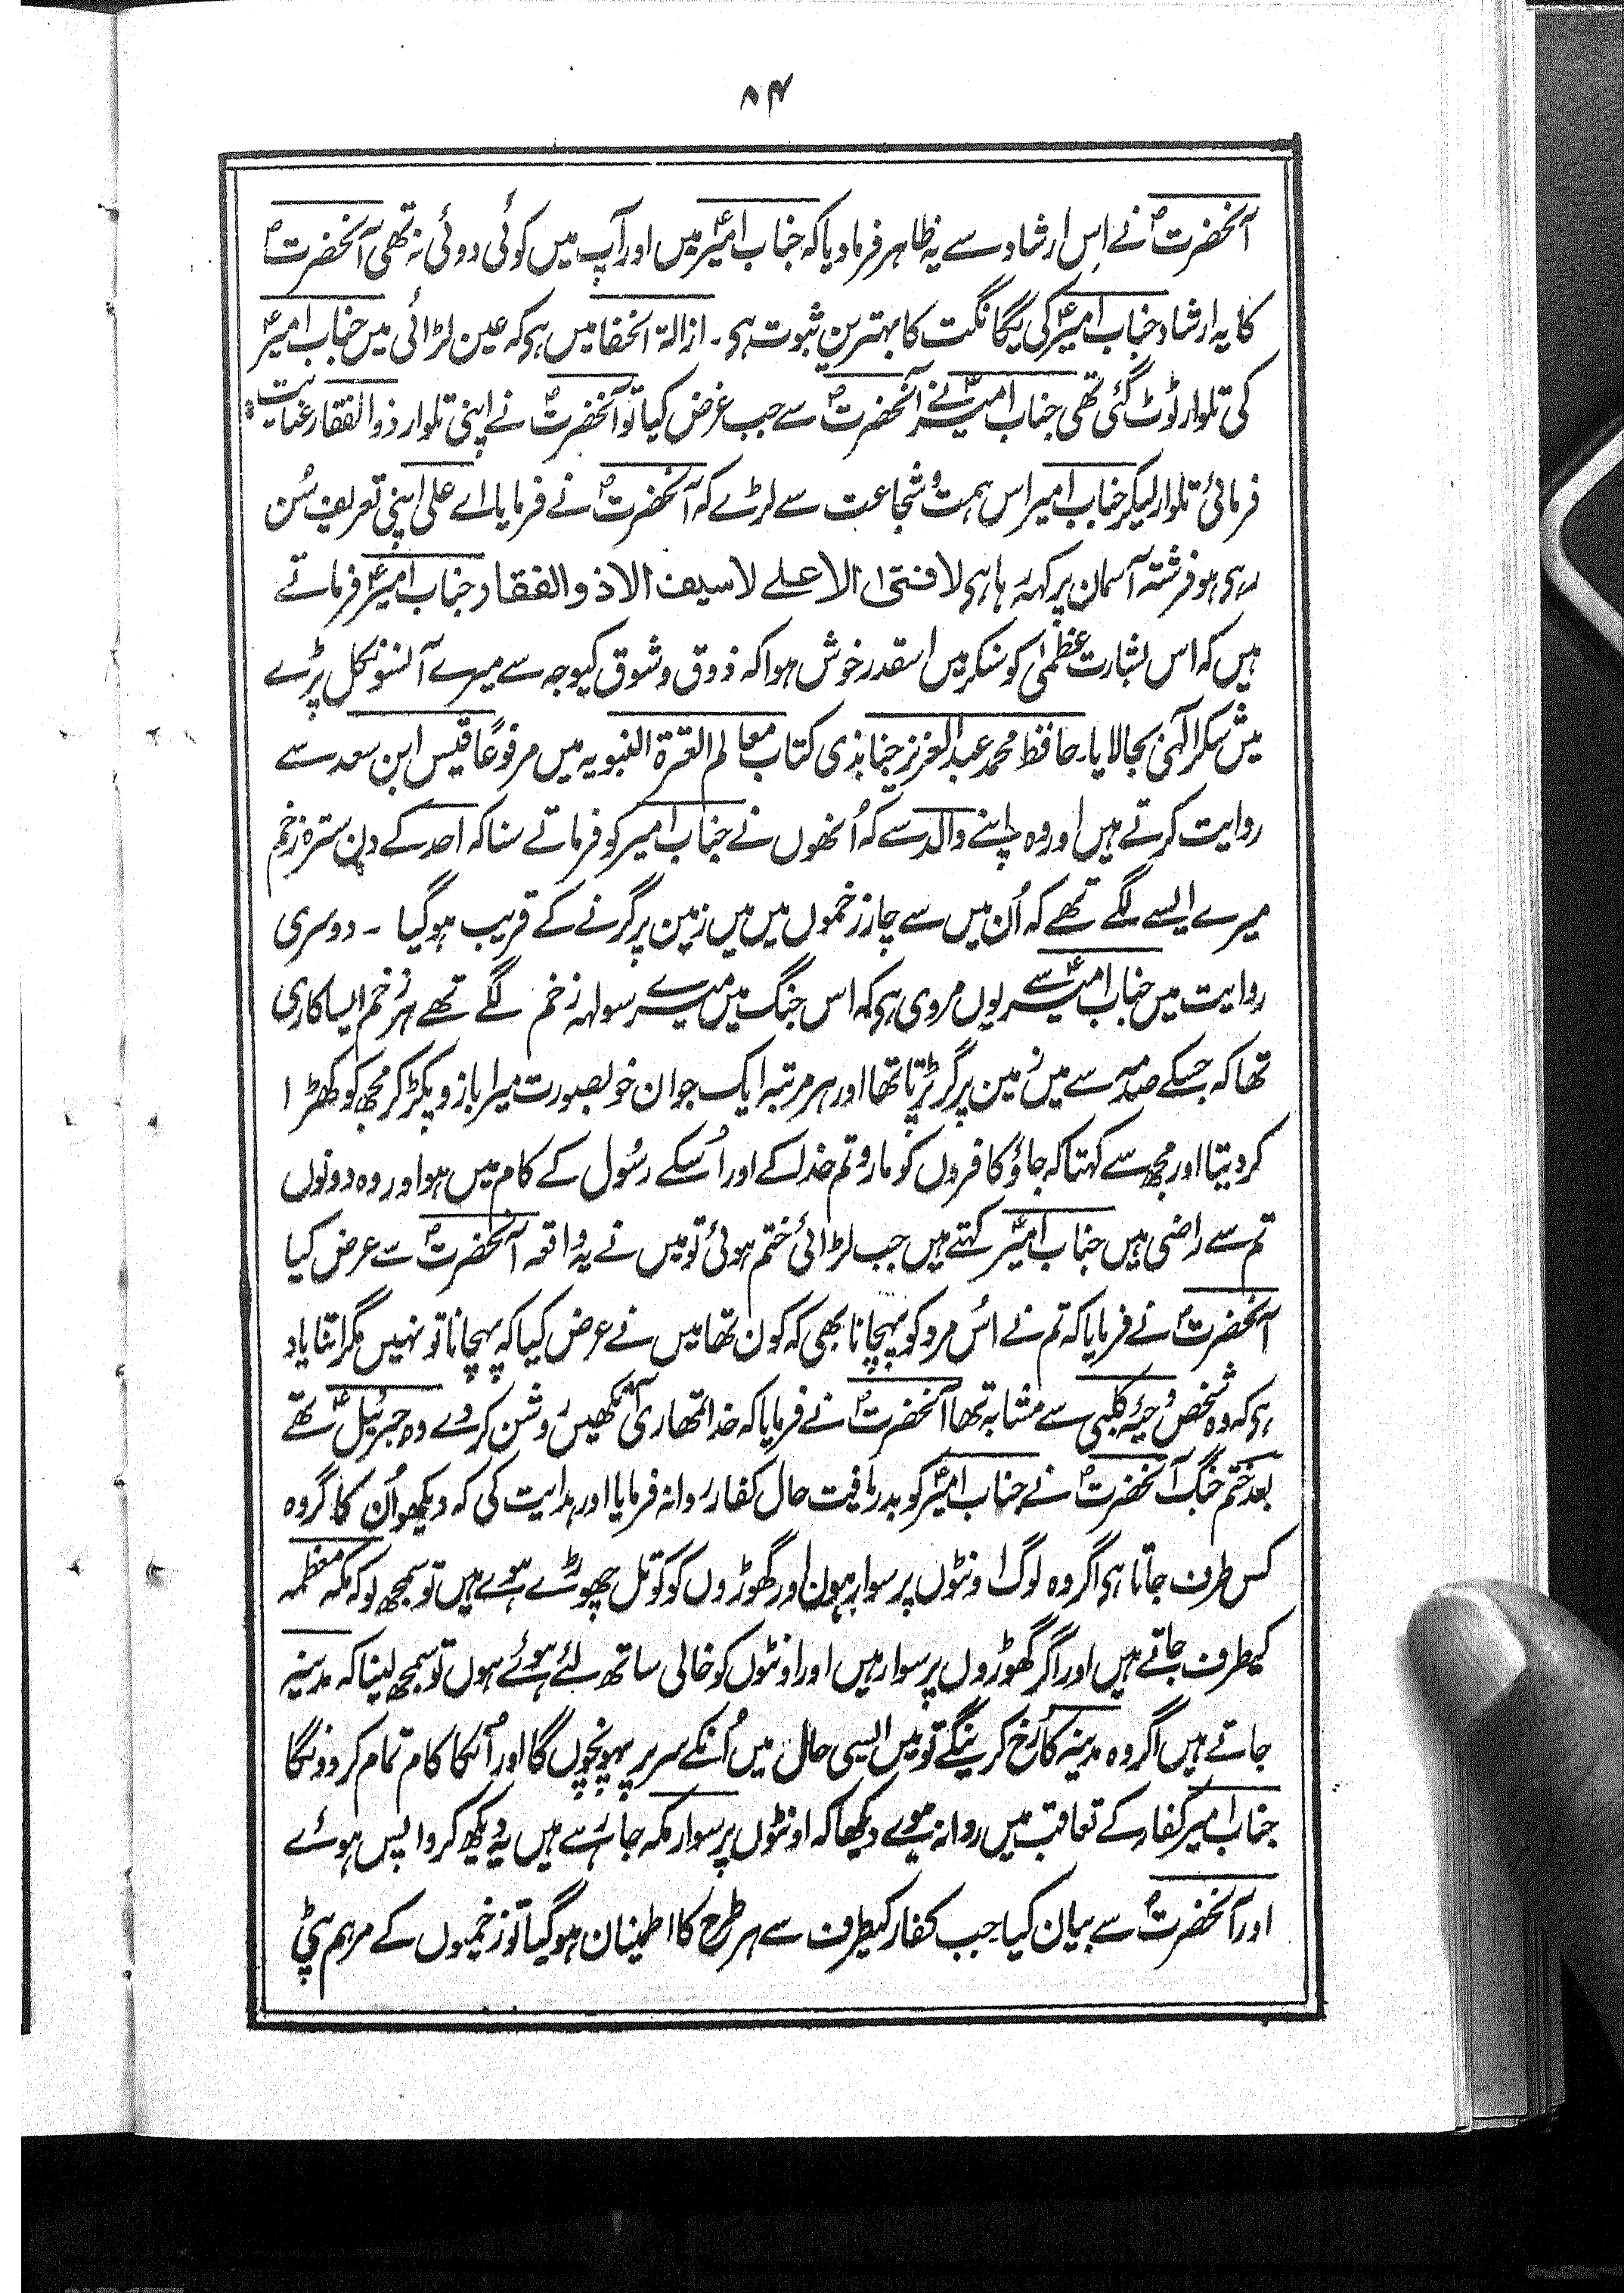 ۸۴
آنحضرتؐ نے اِس ارشاد سے یہ ظاہر فرما دیا کہ جناب امیرؑ میں اور آپ میں کوئی دوئی نہ تھی آنحضرتؐ
کا یہ ارشاد جناب امیرؑ کی یگانگت کا بہترین ثبوت ہی۔ ازالۃ الخفا میں ہی کہ عین لڑائی میں جناب امیرؑ
کی تلوار ٹوٹ گئی تھی جناب امیرؑ نے آنحضرتؐ سے جب عرض کیا تو آنحضرتؐ نے اپنی تلوار ذوالفقار عنایت
فرمائی تلوار لیکر جناب امیر اس ہمت و شجاعت سے لڑے کہ آنحضرتؐ نے فرمایا اے علی اپنی تعریف سُن
رہی ہو فرشتہ آسمان پر کہہ رہا ہی لا فتیٰ الا علے لا سیف الا ذوالفقار جناب امیرؑ فرماتے
ہیں کہ اس بشارت عظمیٰ کو سنکر میں اسقدر خوش ہوا کہ ذوق و شوق کیوجہ سے میرے آنسو نکل پڑے
میں شکر الٰہی بجا لایا۔ حافظ محمد عبد العزیز جنابذی کتاب معالم العترۃ النبویہ میں مرفوعًا قیس ابن سعد سے
روایت کرتے ہیں اور وہ اپنے والد سے کہ اُنھوں نے جناب امیر کو فرماتے سنا کہ احد کے دن سترہ زخم
میرے ایسے لگے تھے کہ اُن میں سے چار زخموں میں میں زمین پر گرنے کے قریب ہوگیا۔ دوسری
روایت میں جناب امیرؑ سے یوں مروی ہی کہ اس جنگ میں میرے سولہہ زخم لگے تھے ہر زخم ایسا کاری
تھا کہ جسکے صدمہ سے میں زمین پر گر پڑتا تھا اور ہر مرتبہ ایک جوان خوبصورت میرا بازو پکڑ کر مجھ کو کھڑا
کر دیتا اور مجھ سے کہتا کہ جاؤ کافروں کو مارو تم خدا کے اور اُسکے رسُول کے کام میں ہو اور وہ دونوں
تم سے راضی ہیں جناب امیرؑ کہتے ہیں جب لڑائی ختم ہوئی تو میں نے یہ واقعہ آنحضرتؐ سے عرض کیا
آنحضرتؐ نے فرمایا کہ تم نے اُس مرد کو پہچانا بھی کہ کون تھا میں نے عرض کیا کہ پہچانا تو نہیں مگر اتنا یاد
ہی کہ وہ شخص دحیہ کلبی سے مشابہ تھا آنحضرتؐ نے فرمایا کہ خدا تمھاری آنکھیں روشن کردے وہ جبرئیلؑ تھے
بعد ختم جنگ آنحضرتؐ نے جناب امیرؑ کو بدریافت حال کفار روانہ فرمایا اور ہدایت کی کہ دیکھو اُن کا گروہ
کس طرف جاتا ہی اگر وہ لوگ اونٹوں پر سوار ہون اور گھوڑوں کو کوتل چھوڑے ہوے ہیں تو سمجھ لو کہ مکہ معظمہ
کیطرف جاتے ہیں اور اگر گھوڑوں پر سوار ہیں اور اونٹوں کو خالی ساتھ لئے ہوئے ہوں تو سمجھ لینا کہ مدینہ
جاتے ہیں اگر وہ مدینہ کا رُخ کرینگے تو میں ایسی حال میں اُنکے سر پر پہونچوں گا اور اُنکا کام تمام کردونگا
جناب امیر کفار کے تعاقب میں روانہ ہوے دیکھا کہ اونٹوں پر سوار مکہ جا رہے ہیں یہ دیکھ کر واپس ہوئے
اور آنحضرتؐ سے بیان کیا جب کفار کیطرف سے ہر طرح کا اطمینان ہوگیا تو زخمیوں کے مرہم پٹی